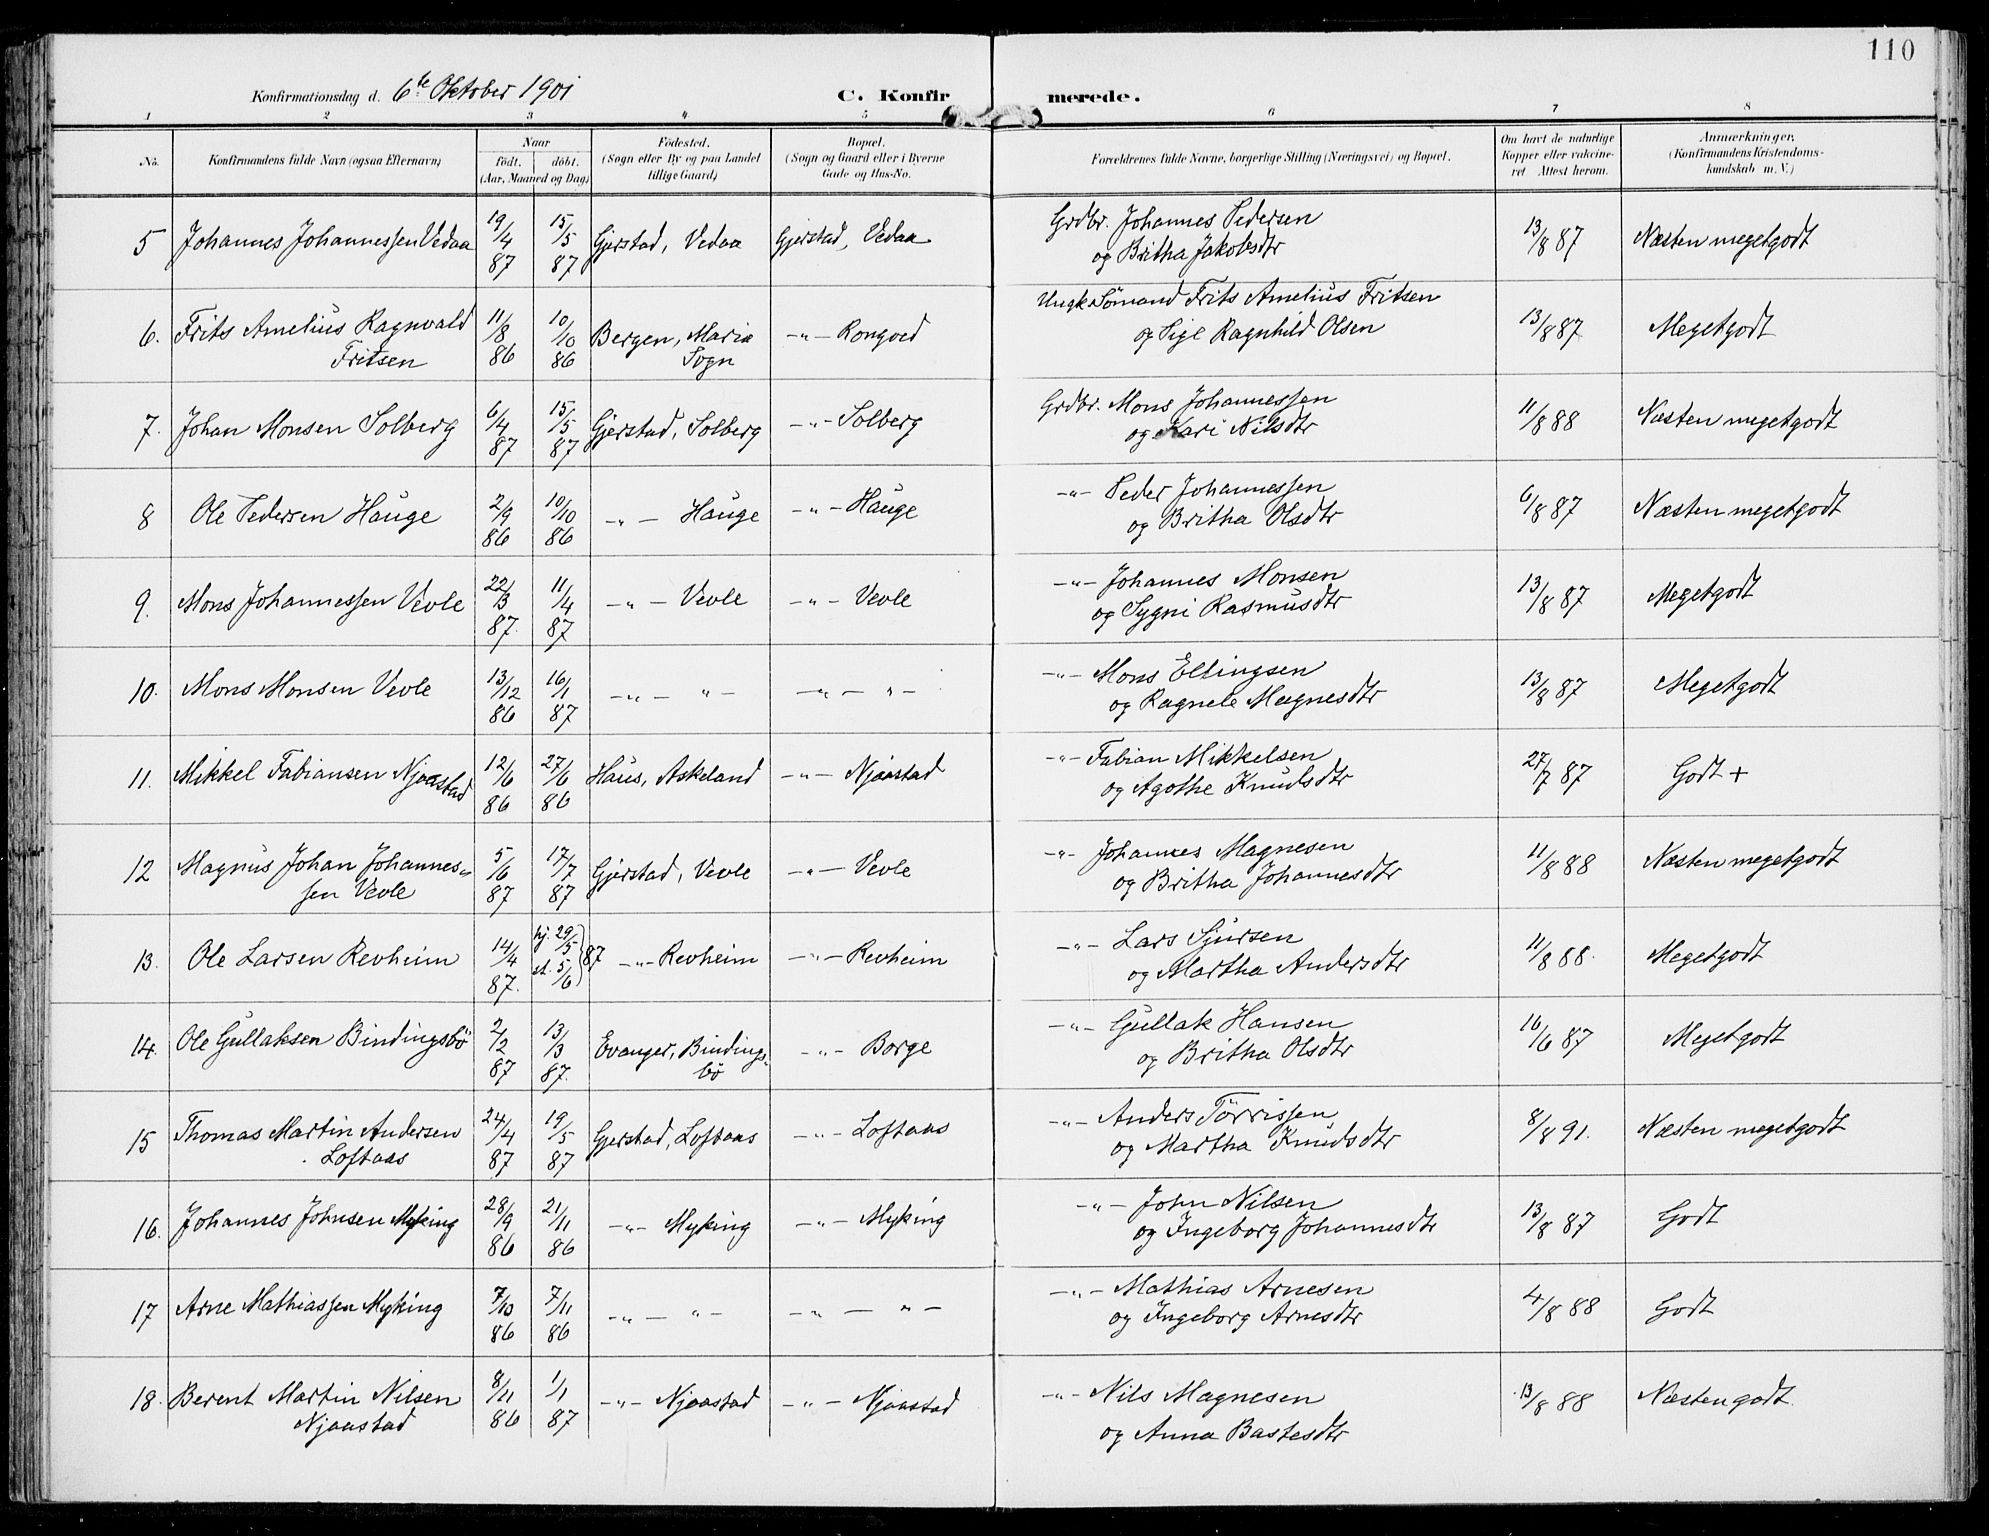 110
Konfirmationsdag d. 6te Oktober 1901 C. Konfir merede.
1 2 3 4 5 6 7 8
No. Konfirmandens fulde Navn (ogsaa Efternavn) Naar födt. döbt. (Aar, Maaned og Dag) Födested. (Sogn eller By og paa Landet tillige Gaard) Bopæl. (Sogn og Gaard eller i Byerne Gade og Hus-No. Forældrenes fulde Navne, borgerlige Stilling (Næringsvei) og Bopæl. Om havt de naturlige Kopper eller vakcineret Attest herom. Anmærkninger. (Konfirmandens Kristendomskundskab m. V.)
5 Johannes Johannessen Vedaa 19/4 87 15/5 87 Gjerstad, Vedaa Gjerstad, Vedaa Grdbr. Johannes Pedersen 13/8 87 Næsten megetgodt
og Britha Jakobsdtr
6. Frits Amelius Ragnvald 11/8 86 10/10 86 Bergen, Maria -"- Ungk. Sömand Frits Amelius Fritsen 13/8 87 Megetgodt
Fritsen Sogn og Ragnhild Olsen
7. Johan Monsen Solberg 6/4 87 15/5 87 Gjerstad, Solberg -"- Solberg Grdbr. Mons Johannessen 11/8 88 Næsten megetgodt
og Kari Nilsdtr
8 Ole Pedersen Hauge 2/9 86 10/10 86 -"- Hauge -"- Hauge -"- Peder Johannessen 6/8 87 Næsten megetgodt
og Britha Olsdtr
9. Mons Johannessen Vevle 22/3 87. 11/4 87 -"- Vevle -"- Vevle -"- Johannes Monsen 13/8 87 Megetgodt
og Sygni Rasmusdtr
10. Mons Monsen Vevle 13/12 86 16/1 87 -"- "- -"- "- -"- Mons Ellingsen 13/8 87 Megetgodt
og Ragnele Magnesdtr
11. Mikkel Fabiansen Njaastad 12/6 86 27/6 86 Haus, Askeland -"- Njaastad -"- Fabian Mikkelsen 27/7 87 Godt +
og Agothe Knudsdtr
12 Magnus Johan Johannes= 5/6 87 17/7 87 Gjerstad, Vevle -"- Vevle -"- Johannes Magnesen 11/8 88 Næsten megetgodt
sen Vevle og Britha Johannesdtr
13. Ole Larsen Revheim 14/4 87. hj. 29/5 st. 5/6 } 87 -"- Revheim -"- Revheim -"- Lars Sjursen 11/8 88. Megetgodt
og Martha Andersdtr
14. Ole Gullaksen Bindingsbö 2/2 87 13/3 87. Evanger, Bindings- -"- Borge -"- Gullak Hansen 16/6 87 Megetgodt
bö og Britha Olsdtr
15 Thomas Martin Andersen 24/4 87 19/5 87 Gjerstad, Loftaas -"- Loftaas -"- Anders Törrissen 8/8 91. Næsten megetgodt
Loftaas og Martha Knudsdtr
16. Johannes Johnsen Myking 28/9 86 21/11 86 -"- Myking -"- Myking -"- John Nilsen 13/8 87 Godt
og Ingeborg Johannesdtr
17 Arne Mathiassen Myking 7/10 86 7/11 86 -"- "- -"- "- -"- Mathias Arnesen 4/8 88 Godt
og Ingeborg Arnesdtr
18. Berent Martin Nilsen 8/11 86 1/1 87 -"- Njaastad -"- Njaastad -"- Nils Magnesen 13/8 88 Næsten godt.
Njaastad og Anna Bastesdtr